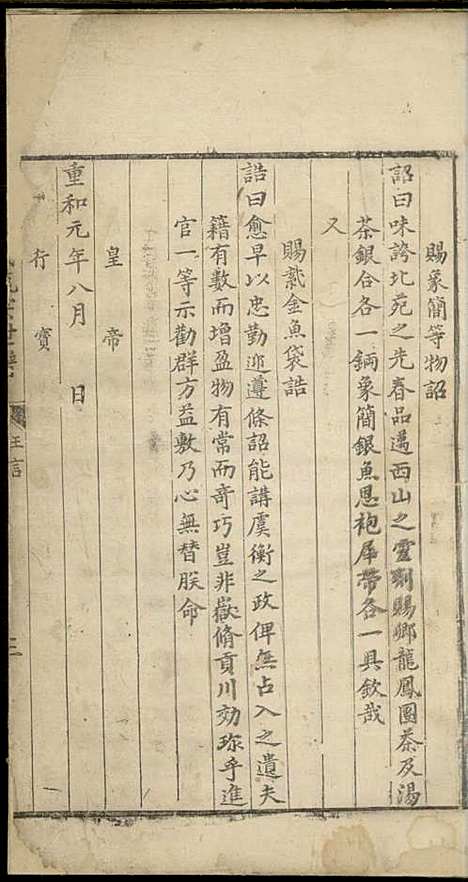 賜象簡等物詔
詔曰味誇北苑之先春品邁西山之靈則賜卿龍鳳團茶及湯
茶銀合各一鋪象簡銀魚恩袍犀帶各一具欽哉
又
賜紫金魚袋誥
誥曰愈早以忠勤迎遵條詔能講虞衡之政俾無占入之遺夫
籍有數而增盈物有常而奇巧豈非嶽脩貢川効珎乎進
官一等示勸群方益敷乃心無替朕命
重和元年八月 日
皇帝
行寶
世譜 王言 三